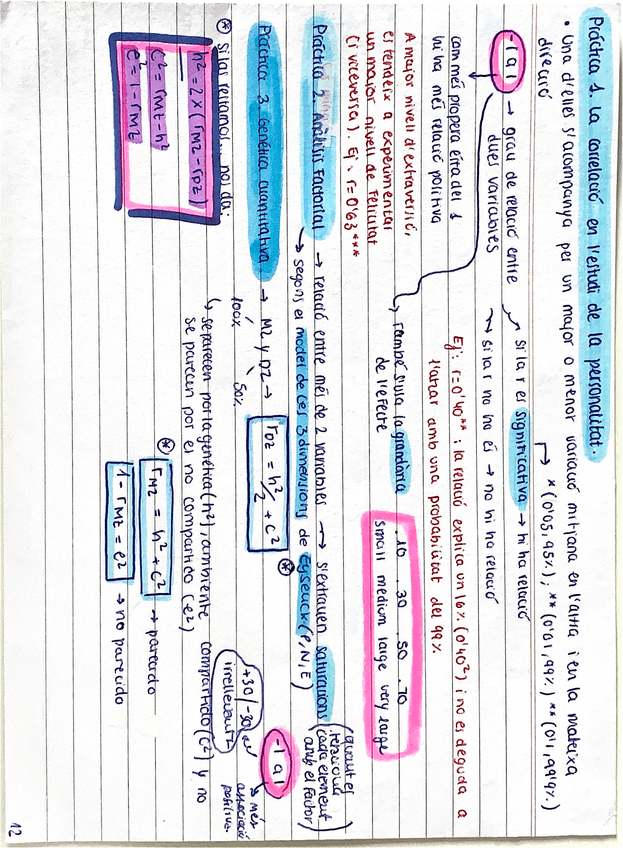 Pràctica 1. La correlació en l'estudi de la personalitat.
• Una d'elles s'acompanya per un major o menor variació mitjana en l'altra i en la mateixa
direcció
* (0'05, 95%), ** (0'01, 99%) ** (0'1, 99'9%)
-1 a 1 → grau de relació entre
dues variables
si la r es significativa → hi ha relació
si la r no ho és → no hi ha relació
com més propera éira del 1
hi ha més relació positiva
A major nivell d'extraversió,
es tendeix a experimentar
un major nivell de Felicitat
(i viceversa). Ej: r=0'63***
Ej: r=0'40** : la relació explica un 16% (0'40²) i no es deguda a
l'atzar amb una probabilitat del 99%
També s'usa la grandària
de l'efecte
.10 .30 .50 .70
small medium large very large
Pràctica 2. Anàlisis Factorial → relació entre més de 2 variables → s'extrauen saturacions
→ segons el model de les 3 dimensions de Eysenck (P, N, E)
cada element
amb el factor)
-1 a 1
→ més
associació
positiva
+30/-30
irrellevants
Pràctica 3. Genètica quantitativa → MZ y DZ → rDZ = h²/2 + c² *
100% 50%
↳ se parecen por la genética (h²), ambiente compartido (c²) y no
se parecen por el no compartido (e²)
* rMZ = h² + c² → parecido
1 - rMZ = e² → no parecido
* Si las restamos, nos da:
h² = 2 x (rMZ - rDZ)
c² = rMZ - h²
e² = 1 - rMZ
12